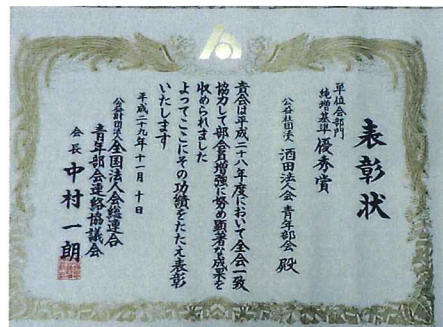 表彰状
単位会部門
純増基準 優秀賞
公益社団法人 酒田法人会 青年部会 殿
貴会は平成二十八年度において全会一致
協力して部会員増強に努め顕著な成果を
収められました
よってここにその功績をたたえ表彰
いたします
平成二十九年十一月十日
公益財団法人 全国法人会総連合
青年部会連絡協議会
会長 中村一朗